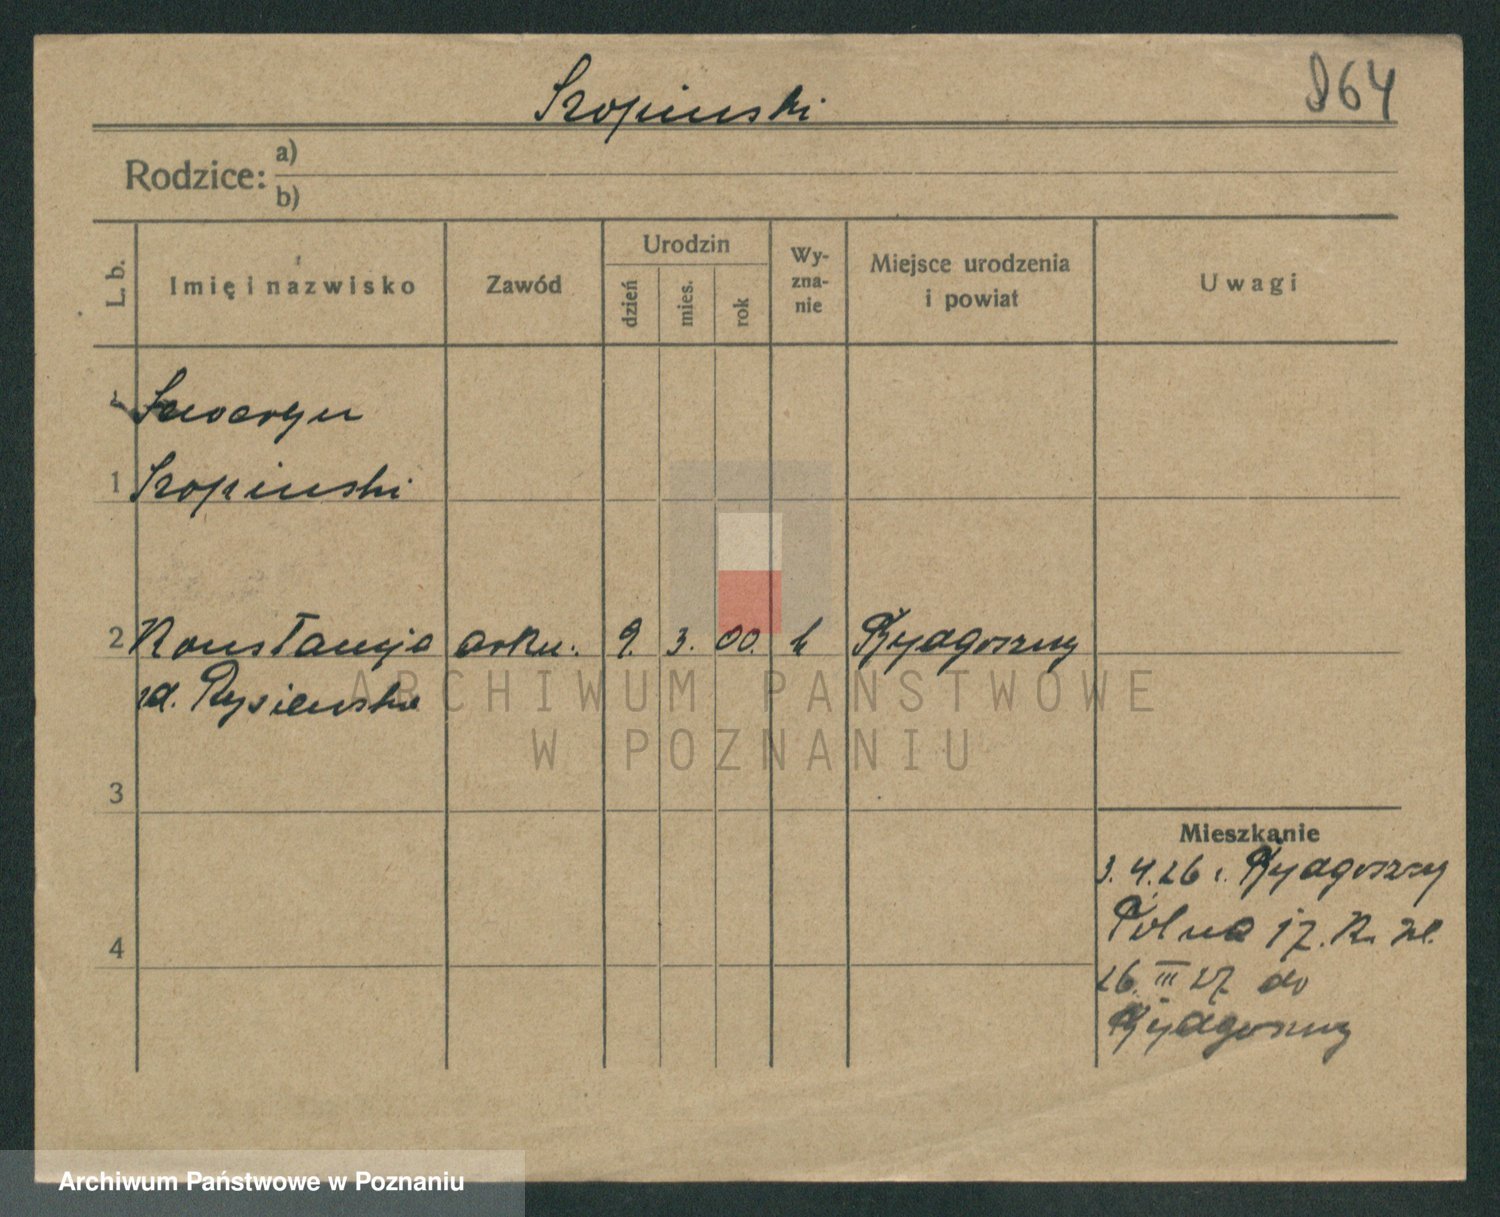 Szopinski
864
Rodzice: a)
b)
L. b.
Imię i nazwisko
Zawód
Urodzin
dzień
mies.
rok
Wy-
zna-
nie
Miejsce urodzenia
i powiat
Uwagi
Seweryn
1 Szopinski
2 Konstancja 9. 3. 00. k Bydgoszcz
3
4
Mieszkanie
3.4.26 Bydgoszczy
Polna 17.
26. III 27. do
Bydgoszczy
ARCHIWUM PAŃSTWOWE
W POZNANIU
Archiwum Państwowe w Poznaniu